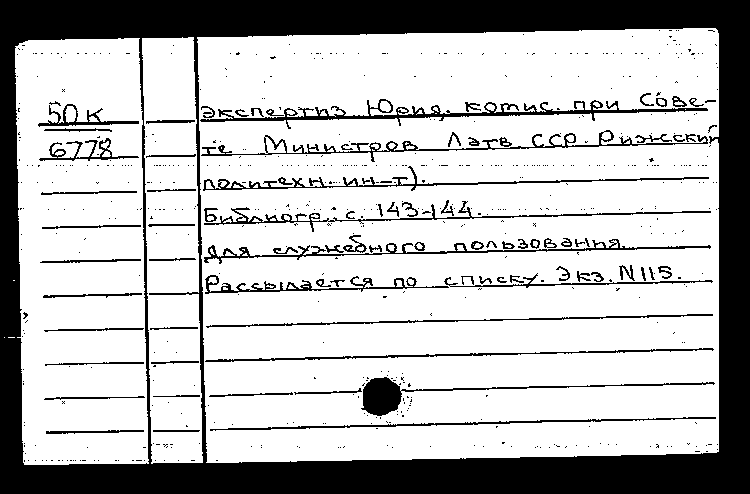 50к
6778
экспертиз Юрид. комис. при Сове-
те Министров Латв. ССР. Рижский
политехн. ин-т).
Библиогр.: с. 143-144.
Для служебного пользования.
Рассылается по списку. Экз. N 115.